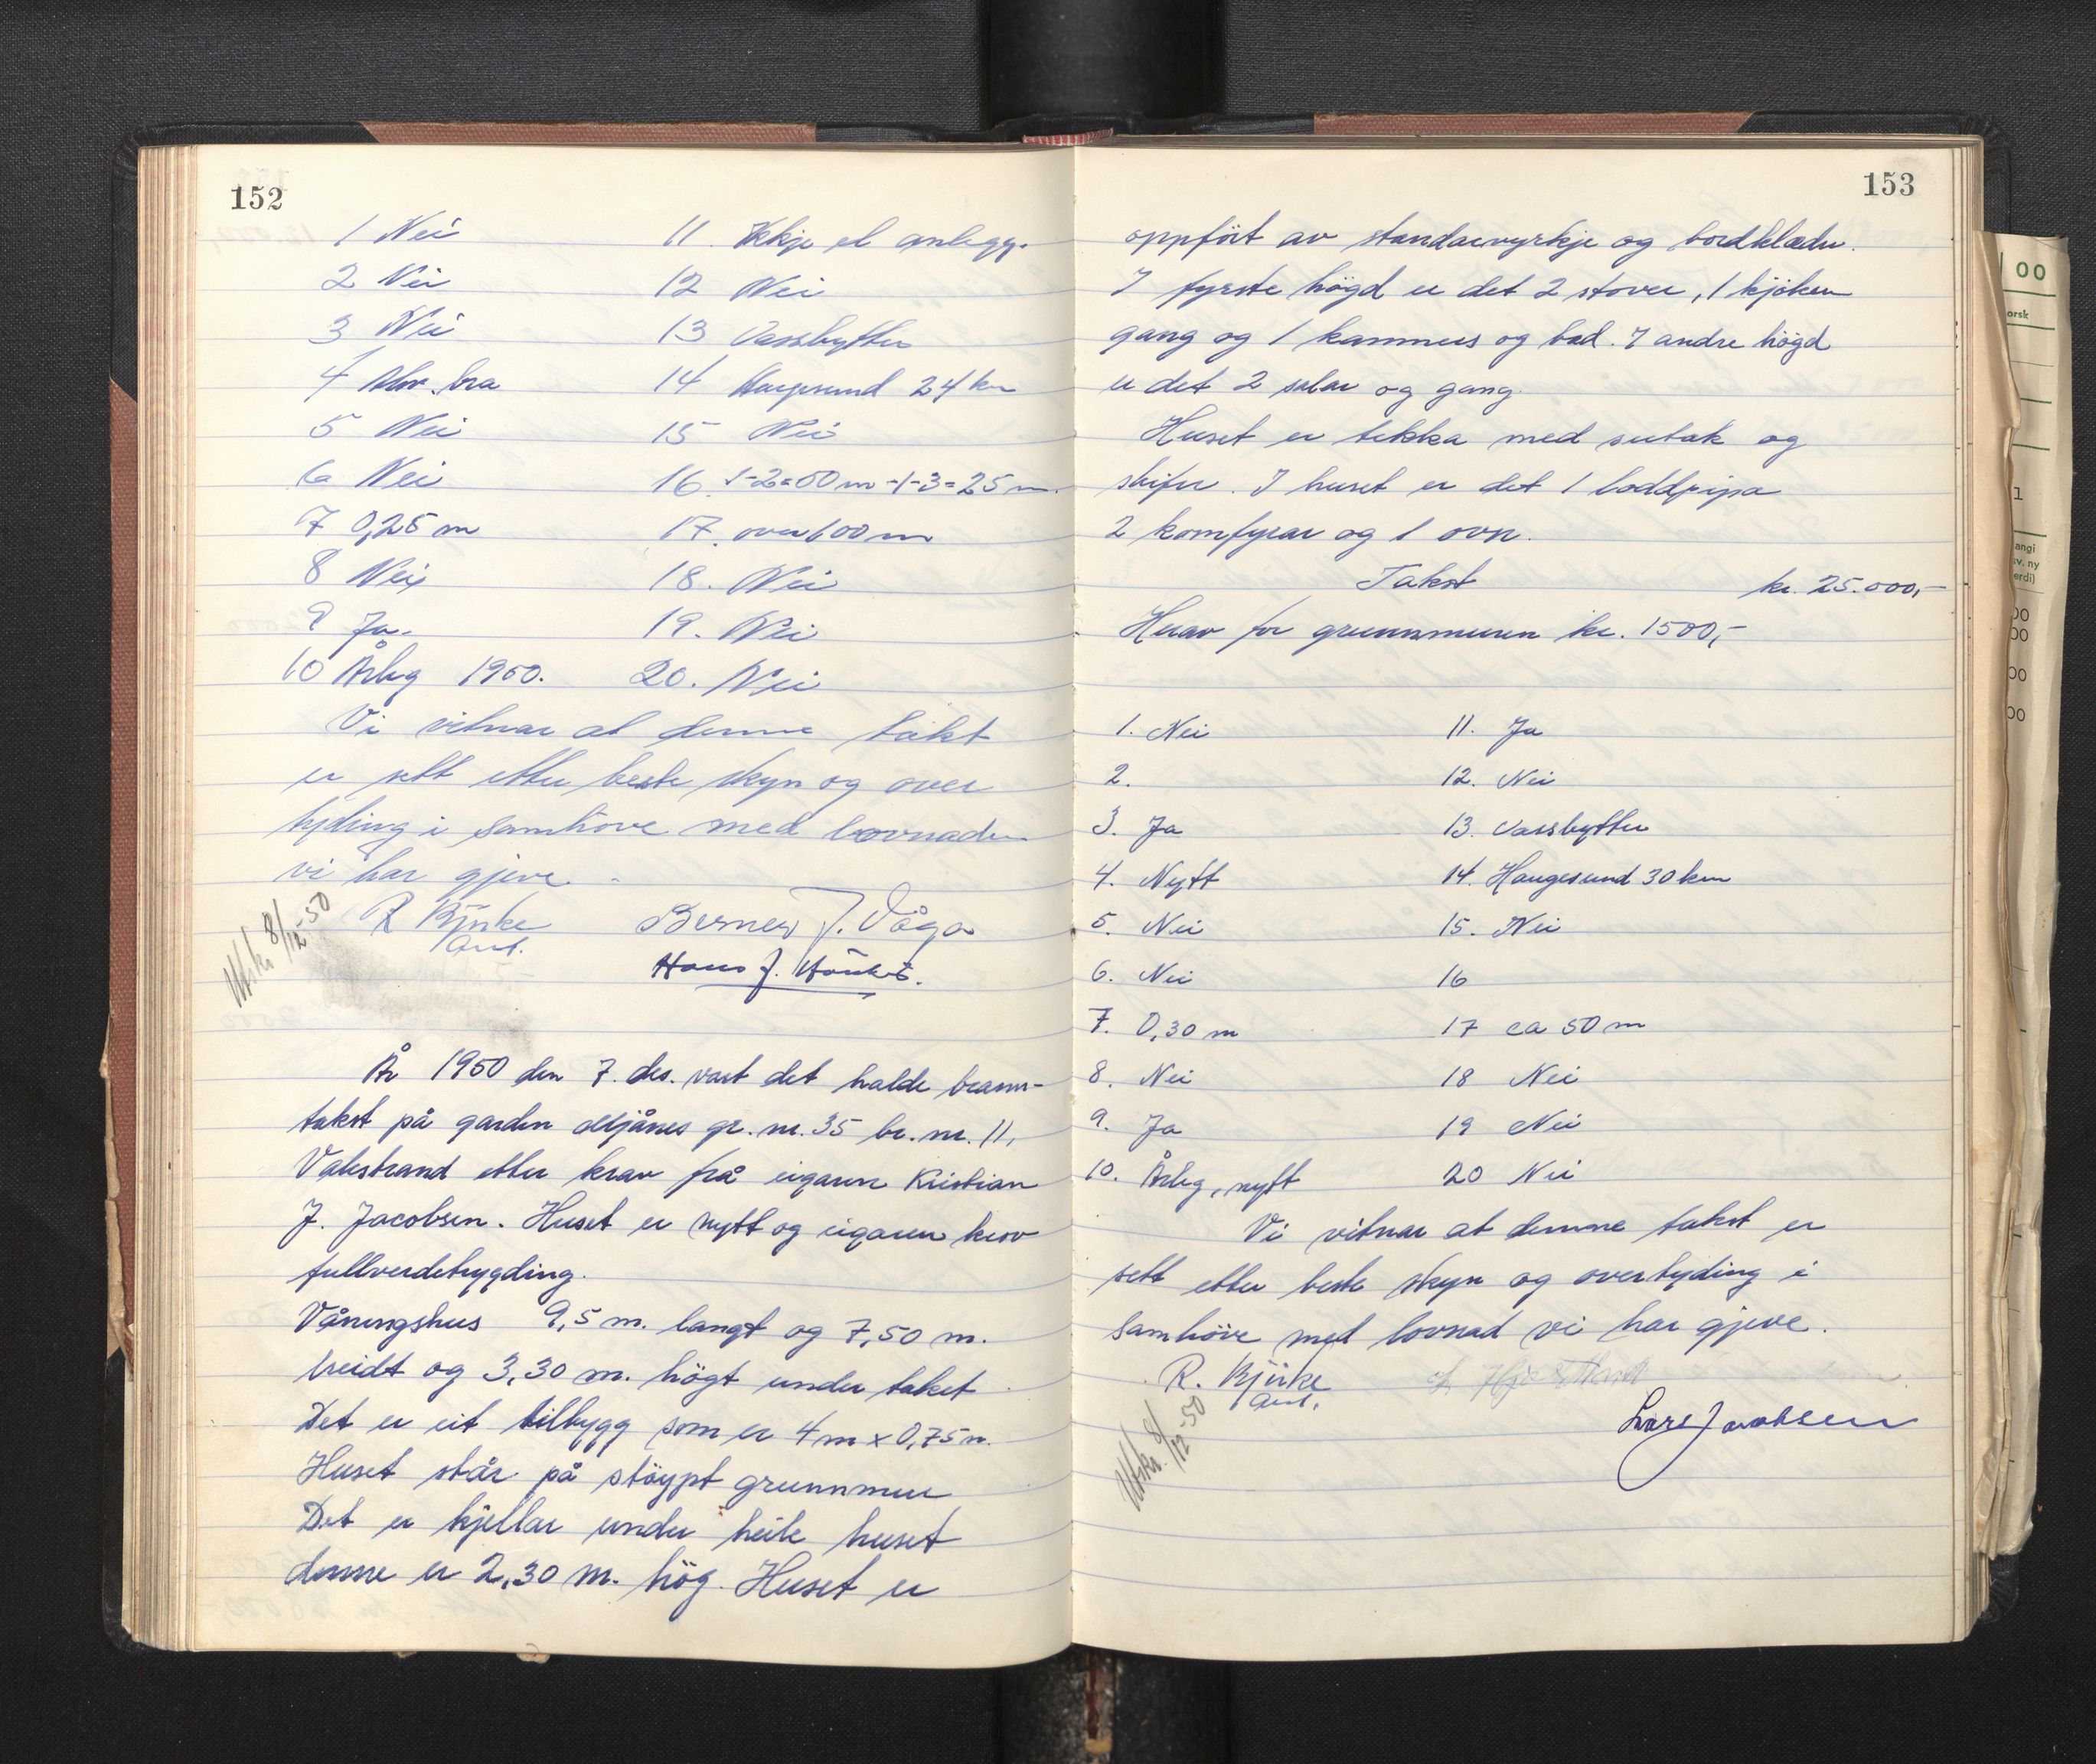 152
1 Nei
2 Nei
3 Nei
4 Alm. bra
5 Nei
6 Nei
7 0,25 m
8 Nei
9 Ja.
10 Årleg 1950.
11. Ikkje el anlegg.
12 Nei
13 Vassbytter
14 Haugesund 24 km
15 Nei
16. 1-2=50 m -1-3=25 m.
17. over 100 m
18. Nei
19. Nei
20. Nei
Vi vitnar at denne takst
er sett etter beste skyn og over
tyding i samhöve med lovnaden
vi har gjeve.
R Bjirke Berner J. Våga
Hans J.
Utskr 8/12-50
År 1950 den 7. des. vart det halde brann-
takst på garden gr. nr. 35 br. nr. 11,
Valestrand etter krav frå eigaren Kristian
J. Jacobsen. Huset er nytt og eigaren krev
fullverdetrygding.
Våningshus 9,5 m. langt og 7,50 m.
breidt og 3,30 m. högt under taket
Det er eit tilbygg som er 4 m x 0,75 m.
Huset står på stöypt grunnmur
Det er kjellar under heile huset
denne er 2,30 m. hög. Huset er
153
oppfört av standarvyrkje og bordklædn.
I fyrste högd er det 2 stover, 1 kjöken
gang og 1 kammers og bad. I andre högd
er det 2 salar og gang.
Huset er tekka med sutak og
skifer. I huset er det 1 loddpipa
2 komfyrar og 1 ovn.
Takst kr. 25.000,-
Herav for grunnmuren kr. 1500,-
1. Nei
2.
3. Ja
4. Nytt
5. Nei
6. Nei
7. 0,30 m
8. Nei
9. Ja
10. Årleg, nytt
11. Ja
12. Nei
13. Vassbytter
14. Haugesund 30 km
15. Nei
16
17 ca 50 m
18 Nei
19 Nei
20 Nei
Vi vitnar at denne takst er
sett etter beste skyn og overtyding i
samhöve med lovnad vi har gjeve.
R. Bjirke
Lars Jacobsen
Utskr. 8/12-50